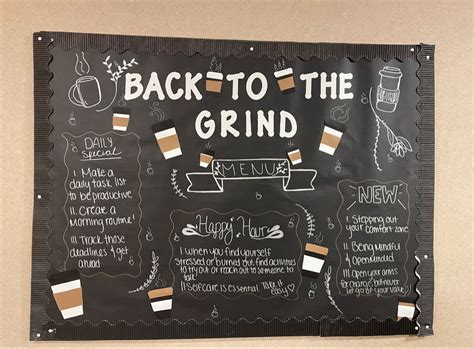 BACK TO THE
GRIND
MENU
DAILY
special
I. Make a
daily task list
to be productive
II. Create a
Morning routine!
III. Track those
deadlines & get
ahead
Happy Hour
I. when you find yourself
stressed or burned out find activities
to try out or reach out to someone to
talk
II. Selfcare is essential. Take it
easy ♡
NEW
I. Stepping out
your comfort zone
II. Being mindful
& openminded
III. Open your arms
for change, but never
let go of you